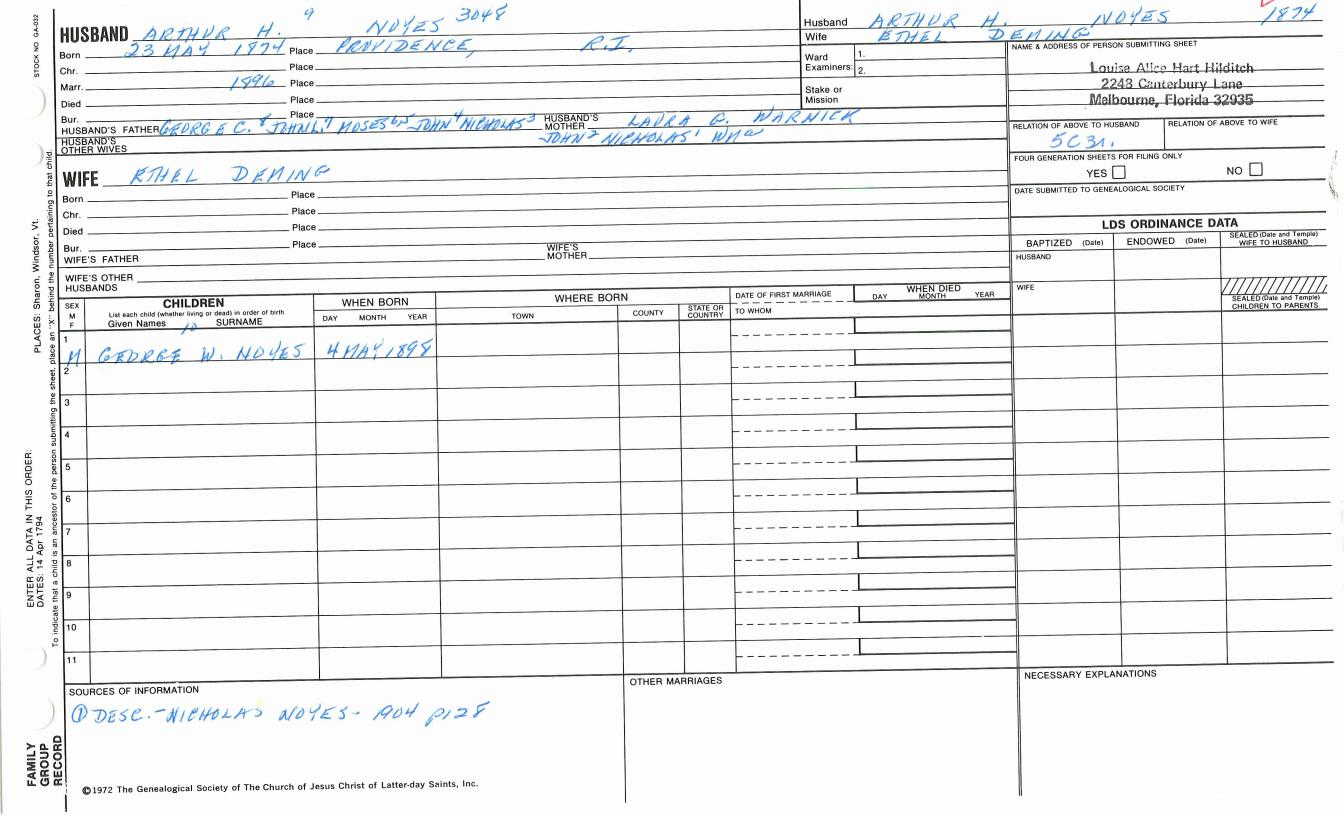 STOCK NO. GA-032
HUSBAND ARTHUR H. 9 NOYES 3048
Born 23 MAY 1874 Place PROVIDENCE, R.I.
Chr. Place
Marr. 1896 Place
Died Place
Bur. Place
HUSBAND'S FATHER GEORGE C.8 JOHN L7 MOSES6,5 JOHN4 NICHOLAS3 HUSBAND'S MOTHER LAURA G. WARNICK
JOHN2 NICHOLAS1 WMa
HUSBAND'S OTHER WIVES
Husband ARTHUR H. NOYES 1874
Wife ETHEL DEMING
Ward Examiners: 1.
2.
Stake or Mission
NAME & ADDRESS OF PERSON SUBMITTING SHEET
Louise Alice Hart Hilditch
2243 Canterbury Lane
Melbourne, Florida 32935
RELATION OF ABOVE TO HUSBAND RELATION OF ABOVE TO WIFE
5C3r.
FOUR GENERATION SHEETS FOR FILING ONLY
YES NO
DATE SUBMITTED TO GENEALOGICAL SOCIETY
WIFE ETHEL DEMING
Born Place
Chr. Place
Died Place
Bur. Place
WIFE'S FATHER WIFE'S MOTHER
WIFE'S OTHER HUSBANDS
LDS ORDINANCE DATA
BAPTIZED (Date) ENDOWED (Date) SEALED (Date and Temple) WIFE TO HUSBAND
HUSBAND
WIFE
SEALED (Date and Temple) CHILDREN TO PARENTS
SEX M F
CHILDREN
List each child (whether living or dead) in order of birth
Given Names 10 SURNAME
WHEN BORN
DAY MONTH YEAR
WHERE BORN
TOWN COUNTY STATE OR COUNTRY
DATE OF FIRST MARRIAGE
TO WHOM
WHEN DIED
DAY MONTH YEAR
1
M GEORGE W. NOYES 4 MAY 1898
2
3
4
5
6
7
8
9
10
11
SOURCES OF INFORMATION
① DESC.-NICHOLAS NOYES- 1904 p128
OTHER MARRIAGES
NECESSARY EXPLANATIONS
©1972 The Genealogical Society of The Church of Jesus Christ of Latter-day Saints, Inc.
FAMILY GROUP RECORD
ENTER ALL DATA IN THIS ORDER:
DATES: 14 Apr 1794
PLACES: Sharon, Windsor, Vt.
To indicate that a child is an ancestor of the person submitting the sheet, place an "X" behind the number pertaining to that child.